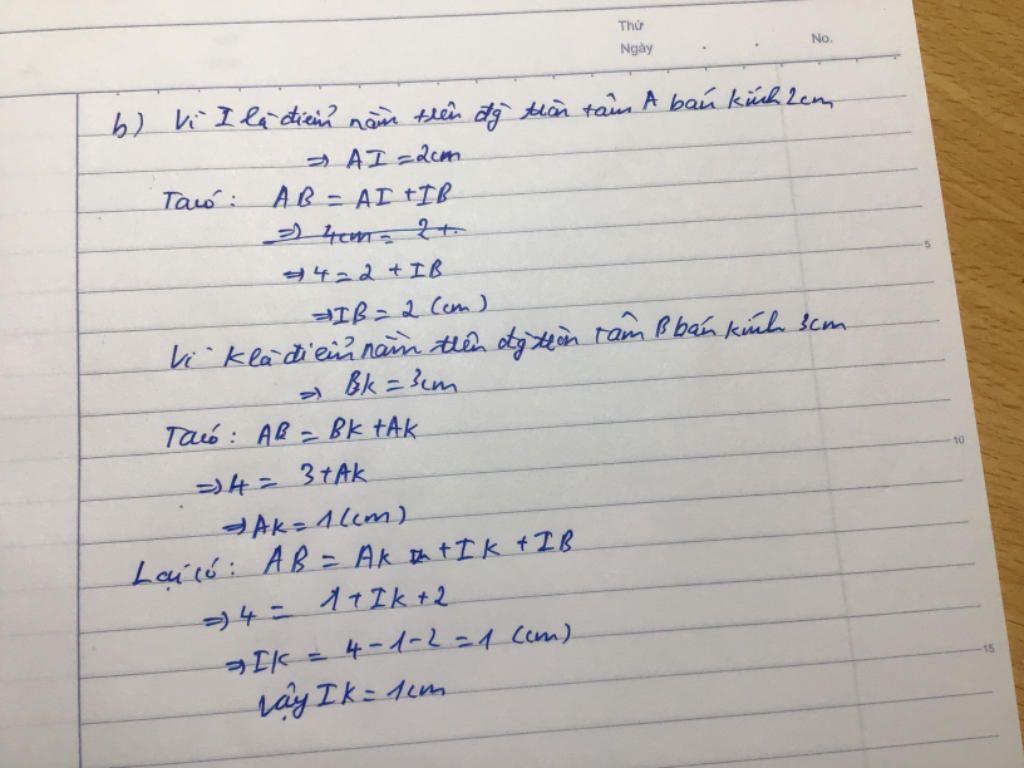 Thứ
Ngày . . No.
b) Vì I là điểm nằm trên đg tròn tâm A bán kính 2cm
⇒ AI = 2cm
Ta có : AB = AI + IB
⇒ 4cm = 2 +
⇒ 4 = 2 + IB
5
⇒ IB = 2 (cm)
Vì K là điểm nằm trên đg tròn tâm B bán kính 3cm
⇒ BK = 3cm
Ta có : AB = BK + AK
10
⇒ 4 = 3 + AK
⇒ AK = 1 (cm)
Lại có : AB = AK + IK + IB
⇒ 4 = 1 + IK + 2
⇒ IK = 4 - 1 - 2 = 1 (cm)
15
Vậy IK = 1cm